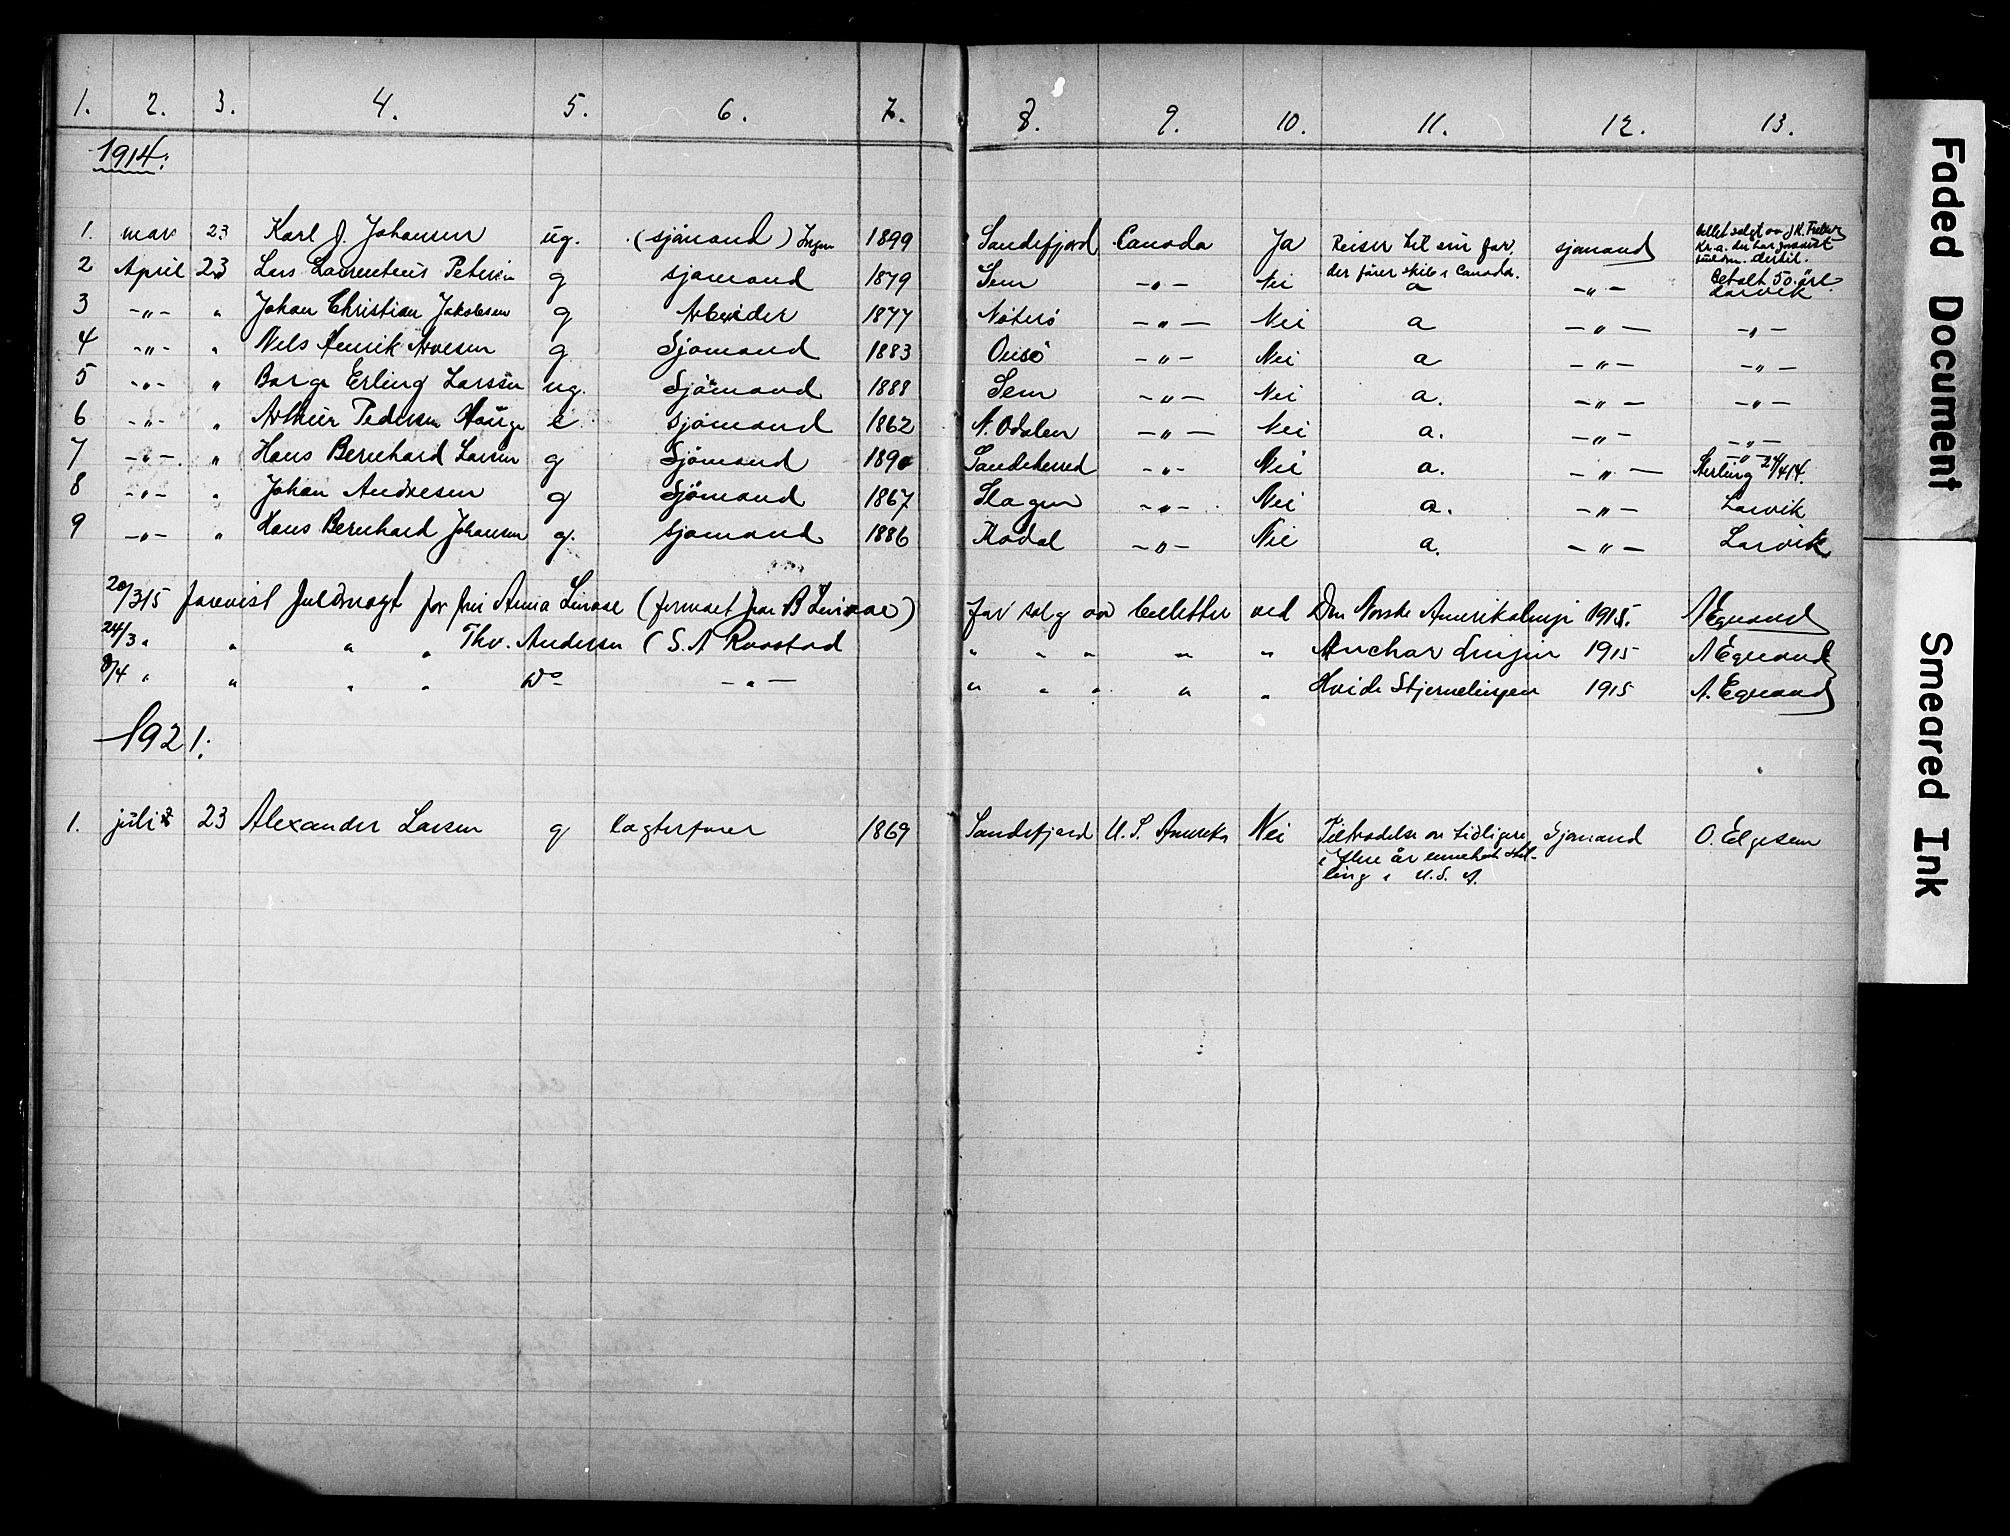 1. 2. 3. 4. 5. 6. 7. 8. 9. 10. 11. 12. 13.
1914:
1. mars 23 Karl J. Johansen ug. (sjömand) Ingen 1899 Sandefjord Canada Ja Reiser til sin far, der förer skib i Canada. sjömand billet solgt av J.K.
Kr.a. der har
dertil.
Betalt 50 öre.
2 April 23 Lars Laurentius Petersen g sjömand 1879 Sem -"- Nei a -"- Larvik
3 -"- " Johan Christian Jakobsen g Arbeider 1877 Nöterö -"- Nei a -"- -"-
4 -"- " Nils Henrik Arvesen g. Sjömand 1883 Onsö -"- Nei a -"- -"-
5 -"- " Borge Erling Larsen ug. Sjömand 1888 Sem -"- Nei a. -"- -"-
6 -"- " Arthur Pedersen Hauge e sjömand 1862 N. Odalen -"- Nei a. -"- -"-
7 -"- " Hans Bernhard Larsen g Sjömand 1890 Sandeherred -"- Nei a. -"- -"- Sterling 24/4 14.
8 -"- " Johan Andresen g Sjömand 1867 Slagen -"- Nei a. -"- Larvik
9 -"- " Hans Bernhard Johansen g. sjömand 1886 Kodal -"- Nei a. -"- Larvik
20/3 15 forevist fuldmagt for fru Anna Linaae (formoet fra B Linaae) for salg av billetter ved Den Norske Amerikalinje 1915. A Egnand
24/3 " " " " Thv. Andersen (S. A Raastad " " " " " Anchor Linjen 1915 A Egnand
8/4 " " " " Do -"- " " " " " Hvide Stjernelinjen 1915 A. Egnand
1921:
1. juli 23 Alexander Larsen g lagterforer 1869 Sandefjord U.S. Amerika Nei Tiltrædelse av tidligere Sjömand O. Elgesem
i flere år innehat stil-
ling i U.S.A.
Faded Document
Smeared Ink